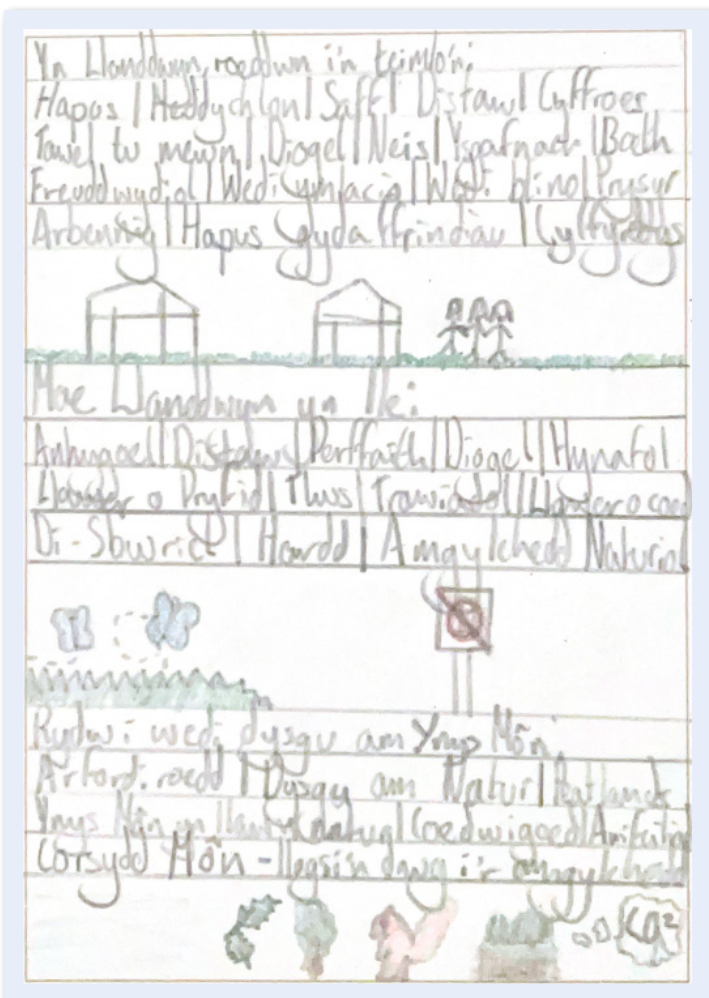 Yn Llanddwyn, roeddwn i'n teimlo'n:
Hapus | Heddychlon | Saff | Distaw | Cyffroes
Tawel tu mewn | Diogel | Neis | Ysgafnach | Balch
Freuddwydiol | Wedi ymlacio | Wedi blino | Prysur
Arbennig | Hapus gyda ffrindiau | Cyffyrddus
Mae Llanddwyn yn lle:
Anhygoel | Distaw | Perffaith | Diogel | Hynafol
Llawer o Bryfid | Tlws | Trawiadol | Llawer o coed
Di-Sbwriel | Hardd | Amgylchedd Naturiol
Rydw i wedi dysgu am Ynys Môn.
Arfordiroedd | Dysgu am Natur | Peatlands
Ynys Môn yn llawn natur | Coedwigoedd | Anifeilia
Corsydd Môn - i'r amgylchedd
CO²